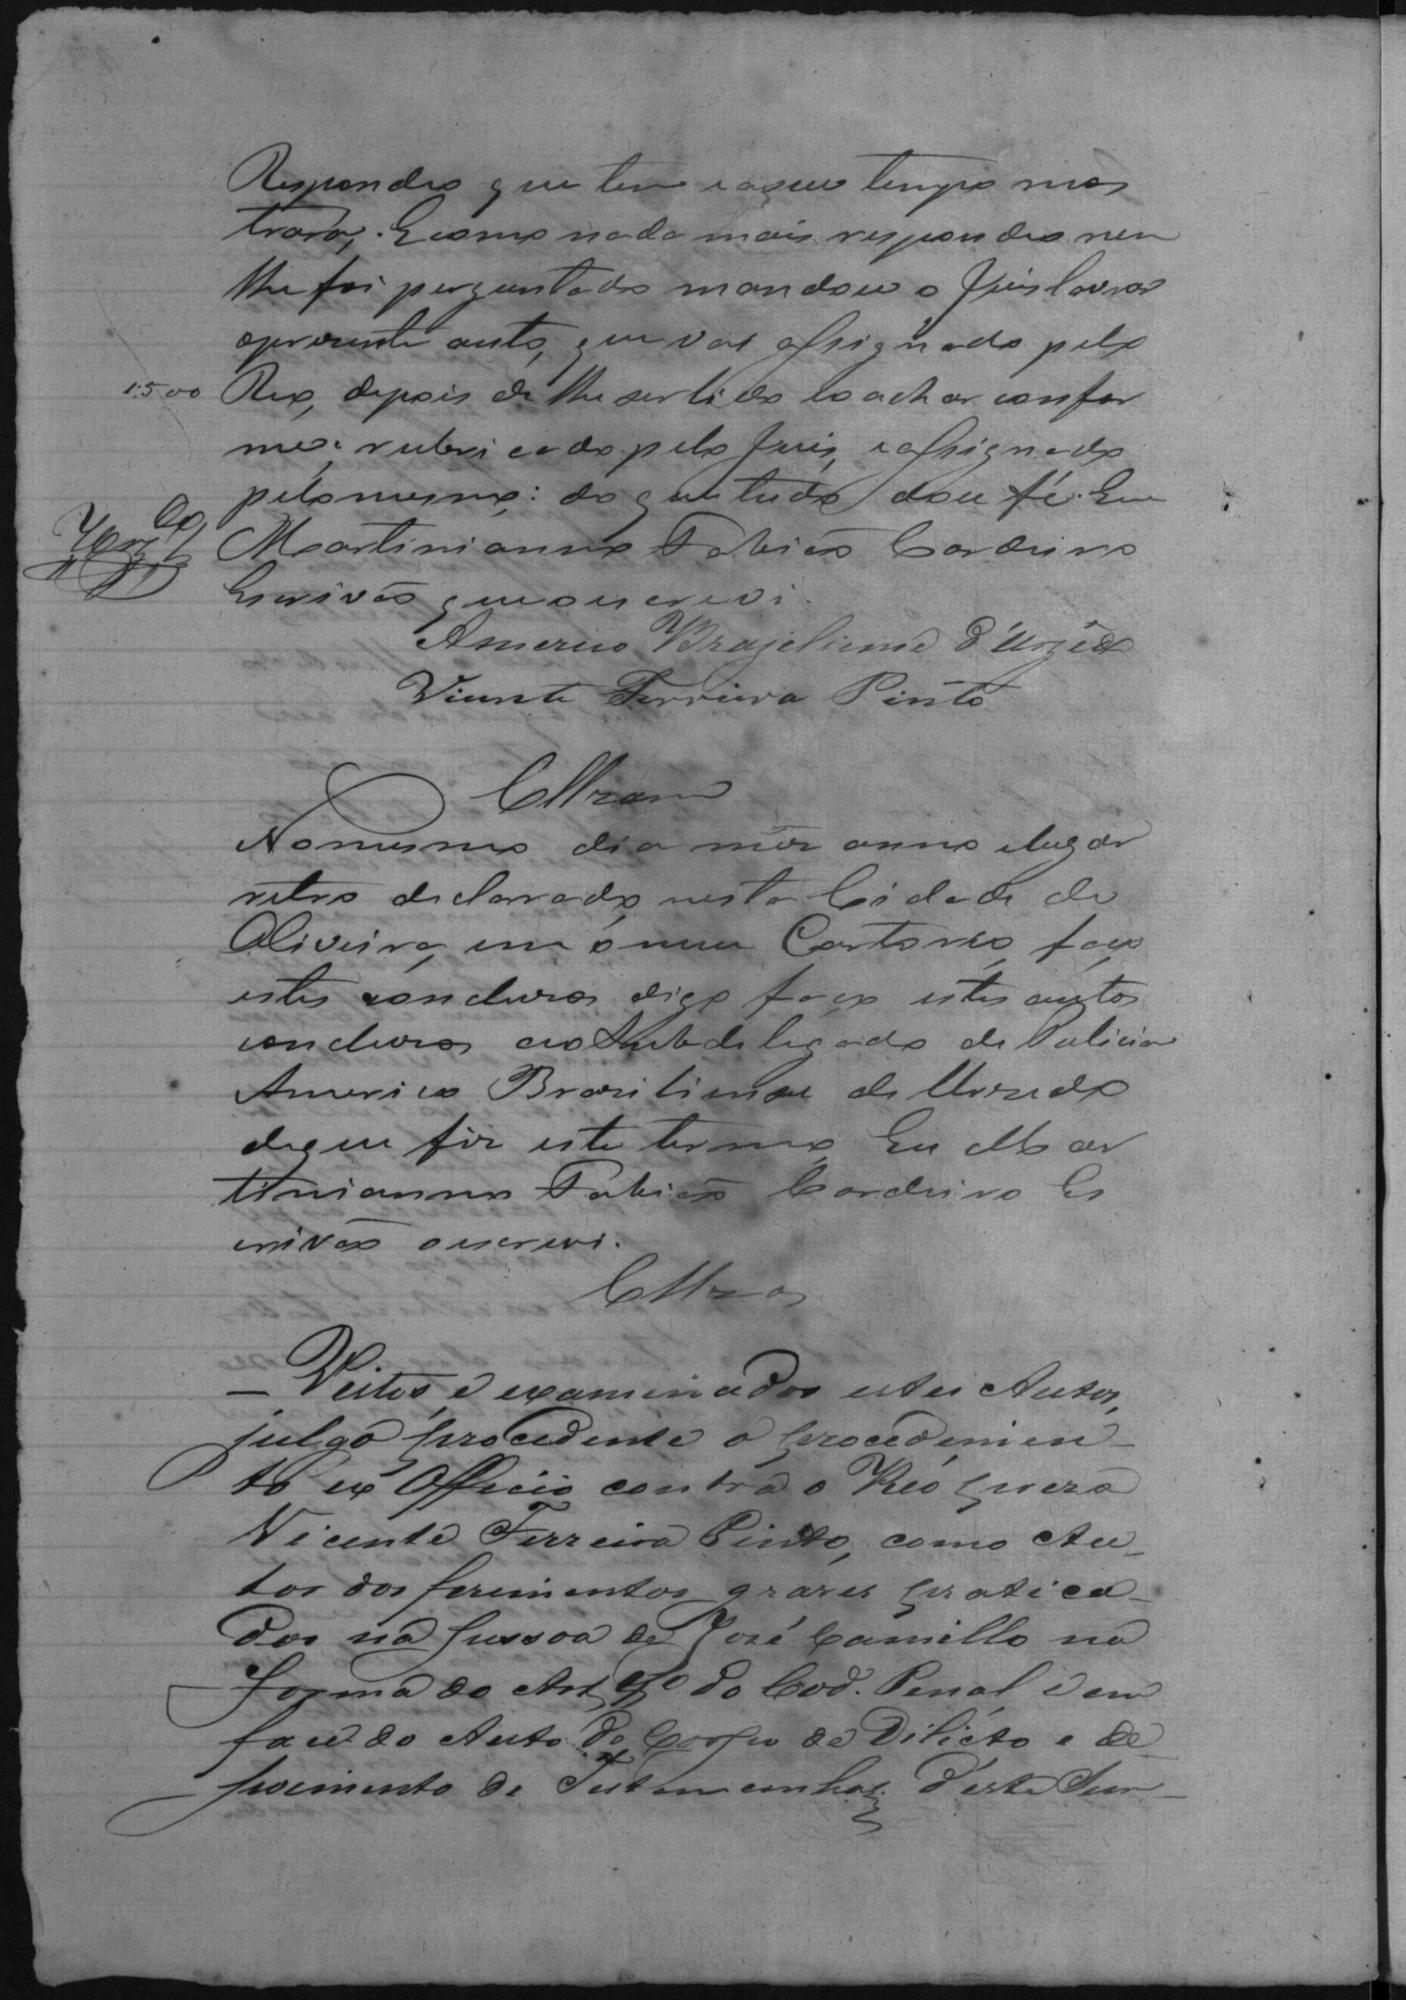 Respondeo que tem e a seu tempo mos
trará. E como nada mais respondeo nem
lhe foi perguntado mandou o Juis lavrar
opresente auto, que vai assignado pelo
1.500 Reo, depois de lhe ser lido e o achar confor
me; rubricado pelo Juis, e assignado
pelo mesmo: do que tudo dou fé. Eu
Martinianno Fabião Cordeiro
Escrivão que o escrevi.
Americo Brazeliense d'Urzêdo
Vicente Ferreira Pinto
Cllzam
No mesmo dia mez anno e lugar
retro declarado, nesta Cidade de
Oliveira, em o meu Cartorio, faço
estes concluzos digo faço estes autos
concluzos ao Subdelegado de Policia
Americo Braziliense de Urzedo
de que fiz este termo. Eu Mar
tinianno Fabião Cordeiro Es
crivão o escrevi.
Cllzos
— Veistos, e examinados estes Autos,
julgo procedente o procedimen-
to ex Officio contra o Reo prezo
Vicente Ferreira Pinto, como Au-
tor dos ferimentos graves pratica-
dos na pessoa de José Camillo na
forma do Art do Cod. Penal e em
face do Auto do Corpo de Dilicto e de-
poimento de Testemunhas d'este Sum-